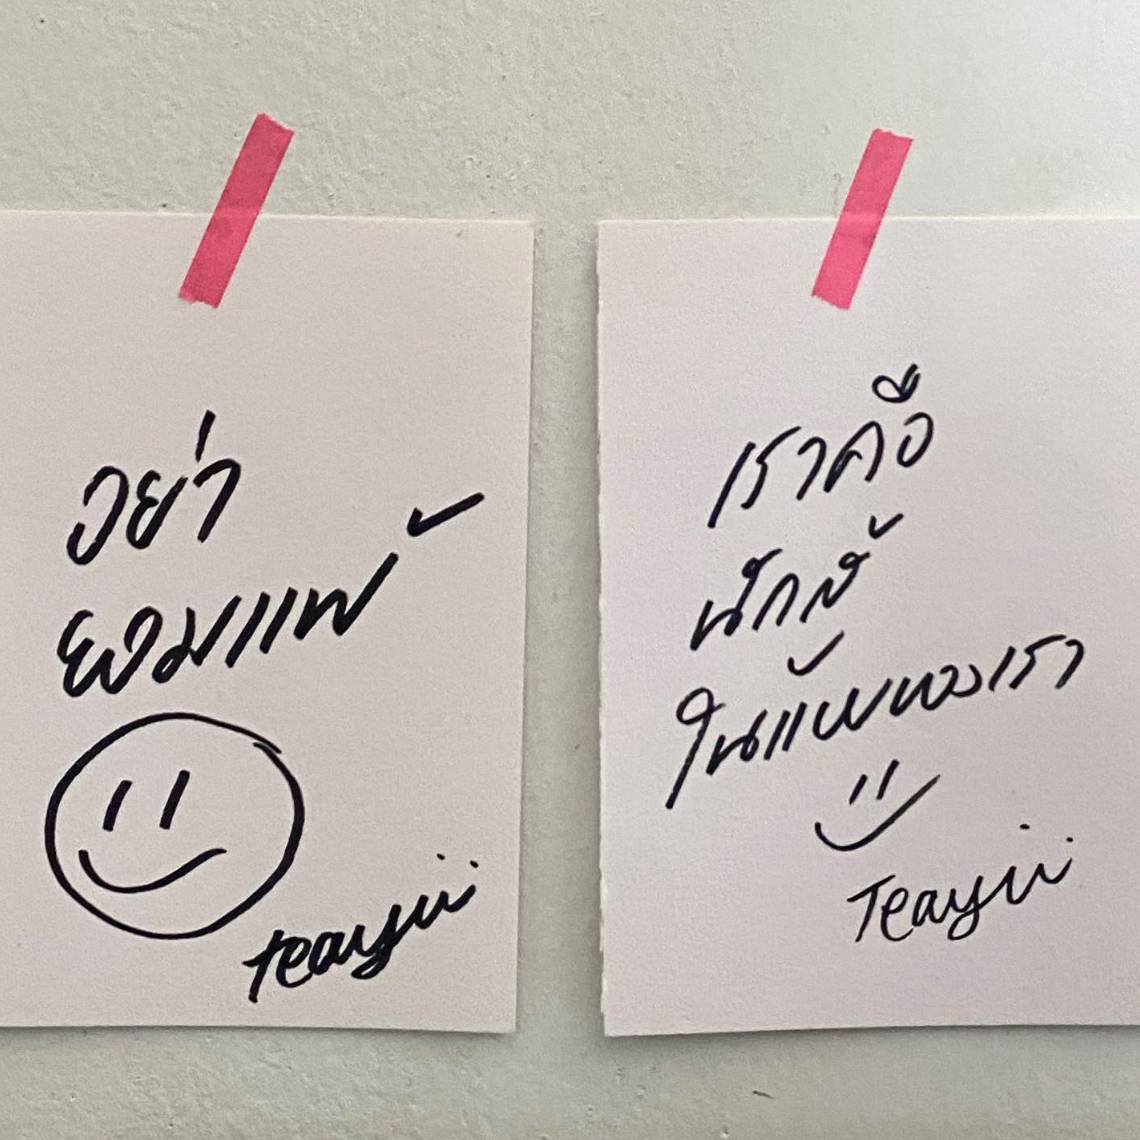 อย่า
ยอมแพ้
teayii
เราคือ
นักสู้
ในแบบของเรา
Teayii